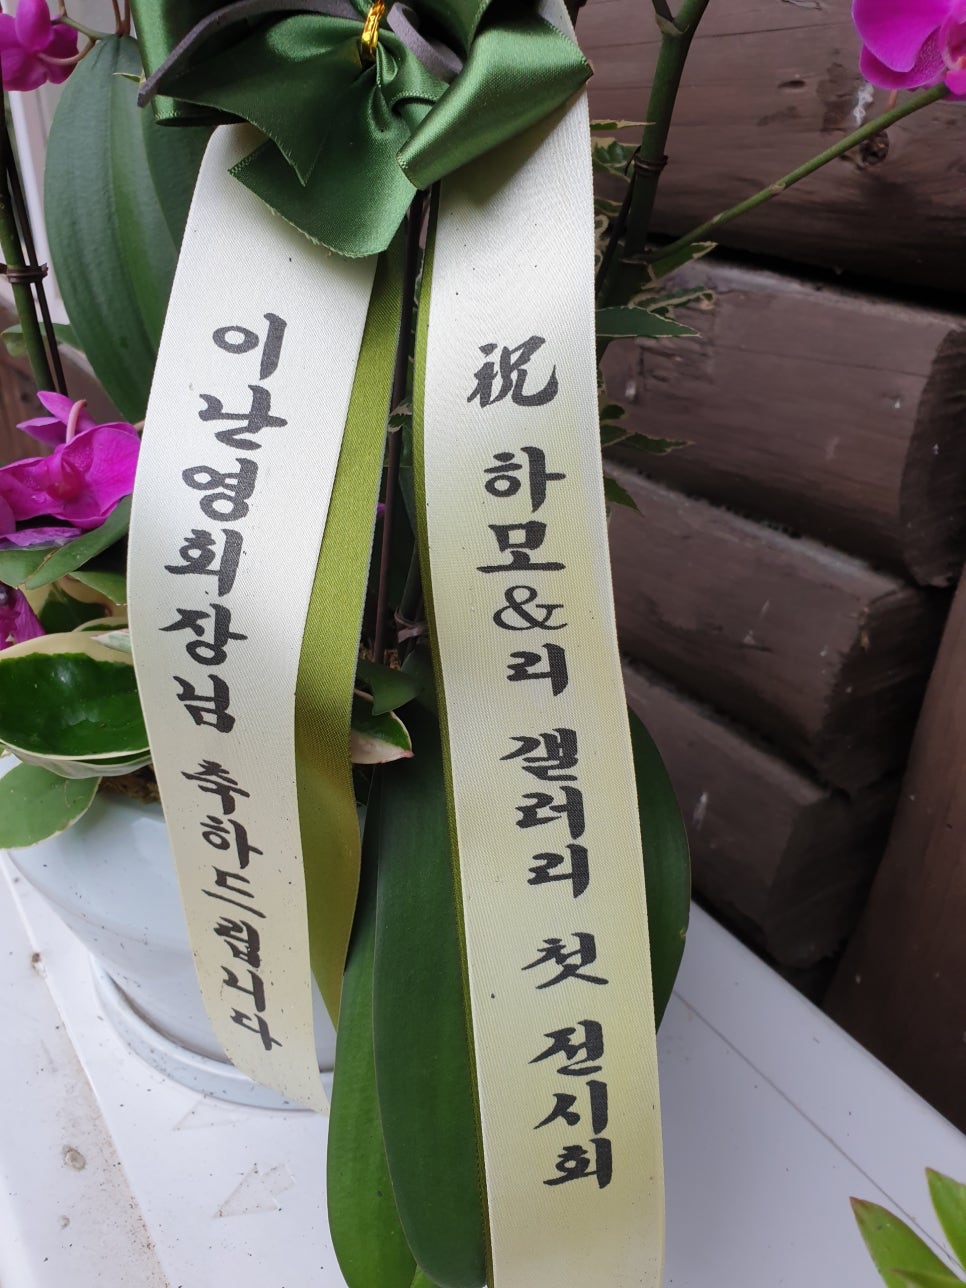 祝 하모&리 갤러리 첫 전시회
이난영회장님 축하드립니다